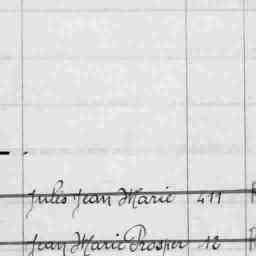 Jules Jean Marie 411
Jean Marie Prosper 12